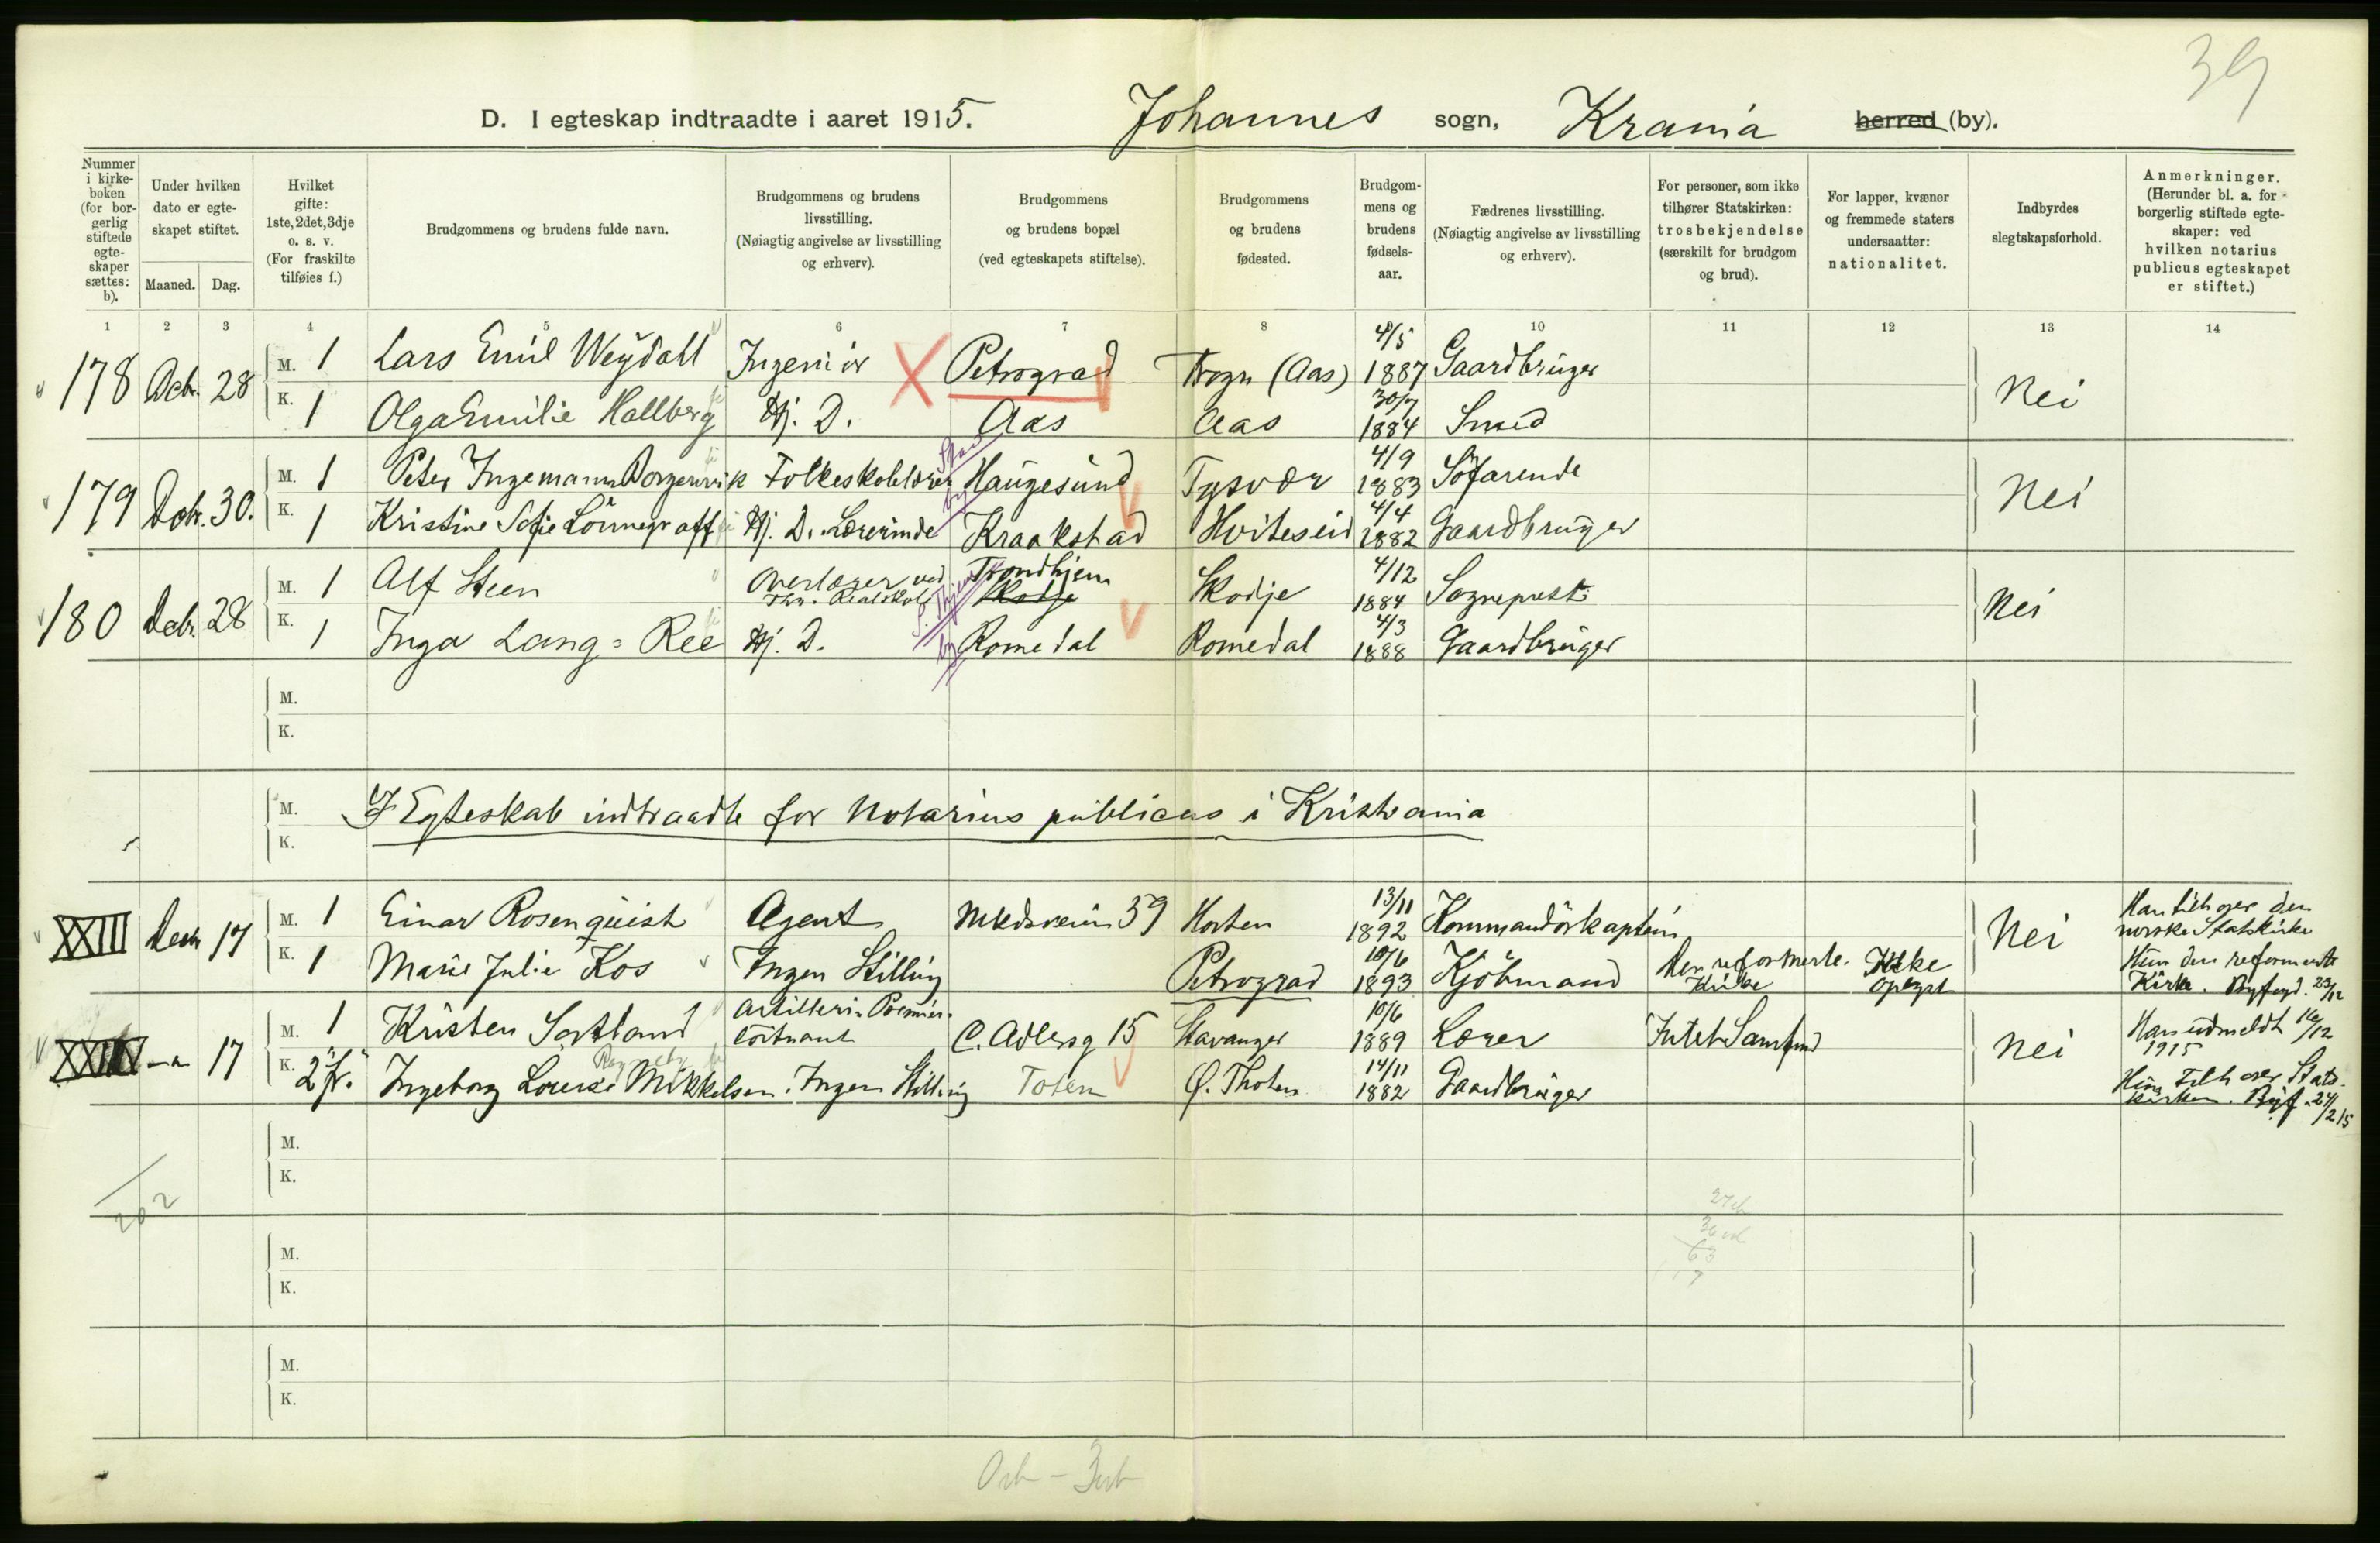 39
D. I egteskap indtraadte i aaret 1915. Johannes sogn, Krania herred (by).
Nummer i kirkeboken (for borgerlig stiftede egteskaper sættes: b).
Under hvilken dato er egteskapet stiftet.
Maaned. Dag.
Hvilket gifte: 1ste, 2det, 3dje o. s. v. (For fraskilte tilføies f.)
Brudgommens og brudens fulde navn.
Brudgommens og brudens livsstilling. (Nøiagtig angivelse av livsstilling og erhverv).
Brudgommens og brudens bopæl (ved egteskapets stiftelse).
Brudgommens og brudens fødested.
Brudgommens og brudens fødselsaar.
Fædrenes livsstilling. (Nøiagtig angivelse av livsstilling og erhverv).
For personer, som ikke tilhører Statskirken: trosbekjendelse (særskilt for brudgom og brud).
For lapper, kvæner og fremmede staters undersaatter: nationalitet.
Indbyrdes slegtskapsforhold.
Anmerkninger. (Herunder bl. a. for borgerlig stiftede egteskaper: ved hvilken notarius publicus egteskapet er stiftet.)
1 2 3 4 5 6 7 8 10 11 12 13 14
178 Decbr. 28 M. 1 Lars Emil Weydahl Ingeniør Petrograd Krogn (Aas) 4/5 1887 Gaardbruger Nei
K. 1 Olga Emilie Hallberg Hj. D. Aas Aas 30/7 1884 Smed
179 Decbr. 30. M. 1 Peter Ingemann Borgenvik Folkeskolelærer Haugesund Tysvær 4/9 1883 Söfarende Nei
K. 1 Kristine Sofie Lönnegraff Hj. D. Lærerinde Kraakstad Hviteseid 4/4 1882 Gaardbruger
180 Decbr. 28 M. 1 Alf Steen Overlærer ved Realskole Trondhjem Skodje Skodje 4/12 1884 Sogneprest Nei
K. 1 Inga Lang=Ree Hj. D. Romedal Romedal 4/3 1888 Gaardbruger
M.
K.
M. I Egteskab indtraadte for Notarius publicus i Kristiania
K.
XXIII Decb 17 M. 1 Einar Rosenquist Agent Meltzersgt 39 Horten 13/11 1892 Kommandörkaptein Nei Han tilhører den norske Statskirke
K. 1 Marie Julie Kos Ingen Stilling Petrograd 10/6 1893 Kjöbmand Den reformerte Kirke Ikke oplyst Hun den reformerte Kirke. Byfogd. 23/12
17 M. 1 Kristen Sortland Artilleri Premierlöitnant C. Adlersg 15 Stavanger 10/6 1889 Lærer Intet Samfund Nei Han udmeldt 16/12 1915
K. 2' fr. Ingeborg Louise Mikkelsen. Ingen Stilling Toten Ø. Thoten 14/11 1882 Gaardbruger Hun Tilhører Statskirken. Byf. 24/2 15
M.
K.
202
M.
K.
M.
K.